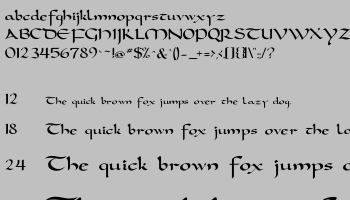 abcdefghijklmnopqrstuvwxyz
ABCDEFGHIJKLMNOPQRSTUVWXYZ
0123456789
12 The quick brown fox jumps over the lazy dog.
18 The quick brown fox jumps over the la
24 The quick brown fox jumps